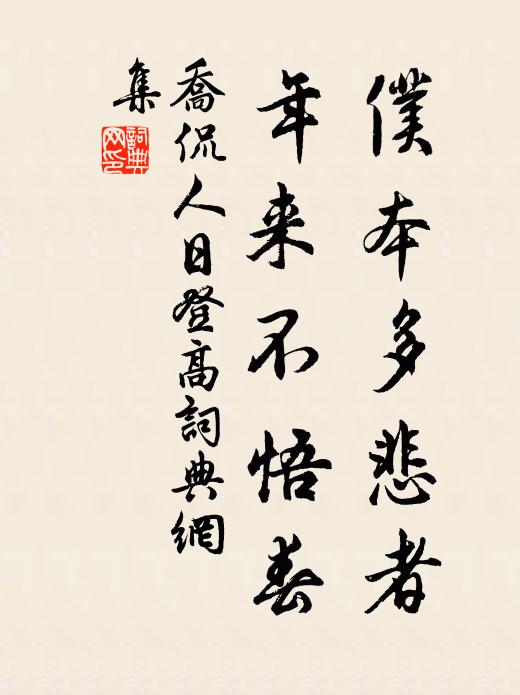 僕本多悲者
年来不悟春
喬侃人日登高詞典網
集
詞典
网印